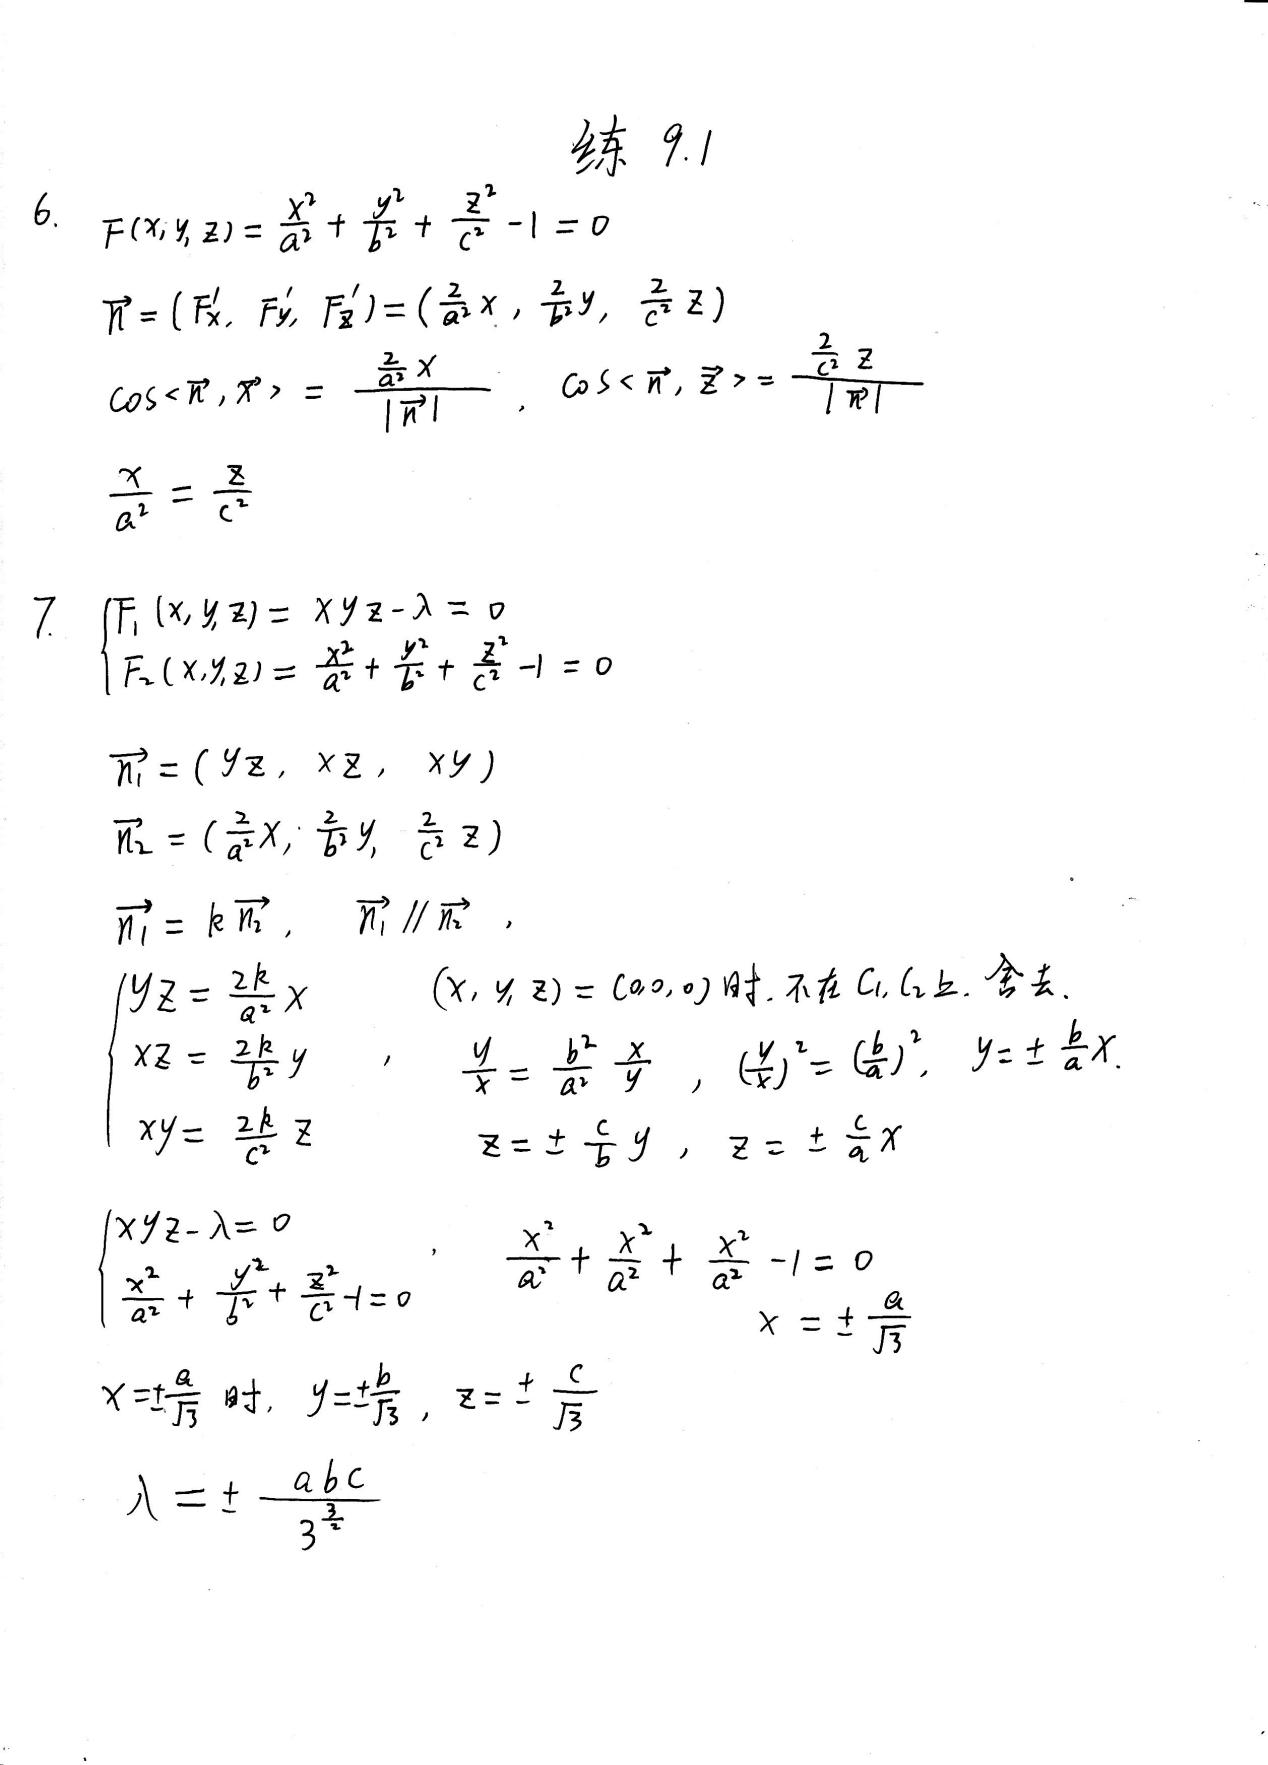 练 9.1
6. F(x, y, z) = x²/a² + y²/b² + z²/c² - 1 = 0
n⃗ = (F′x, F′y, F′z) = (2/a² x, 2/b² y, 2/c² z)
cos<n⃗, x⃗> = (2/a² x)/|n⃗| , cos<n⃗, z⃗> = (2/c² z)/|n⃗|
x/a² = z/c²
7. { F₁(x, y, z) = xyz - λ = 0
F₂(x, y, z) = x²/a² + y²/b² + z²/c² - 1 = 0
n₁⃗ = (yz, xz, xy)
n₂⃗ = (2/a² x, 2/b² y, 2/c² z)
n₁⃗ = k n₂⃗, n₁⃗ // n₂⃗ ,
{ yz = 2k/a² x (x, y, z) = (0,0,0) 时. 不在 C₁, C₂ 上. 舍去.
xz = 2k/b² y , y/x = b²/a² x/y , (y/x)² = (b/a)², y = ± b/a x.
xy = 2k/c² z z = ± c/b y , z = ± c/a x
{ xyz - λ = 0
x²/a² + y²/b² + z²/c² - 1 = 0 , x²/a² + x²/a² + x²/a² - 1 = 0
x = ± a/√3
x = ± a/√3 时, y = ± b/√3 , z = ± c/√3
λ = ± abc/3^(3/2)